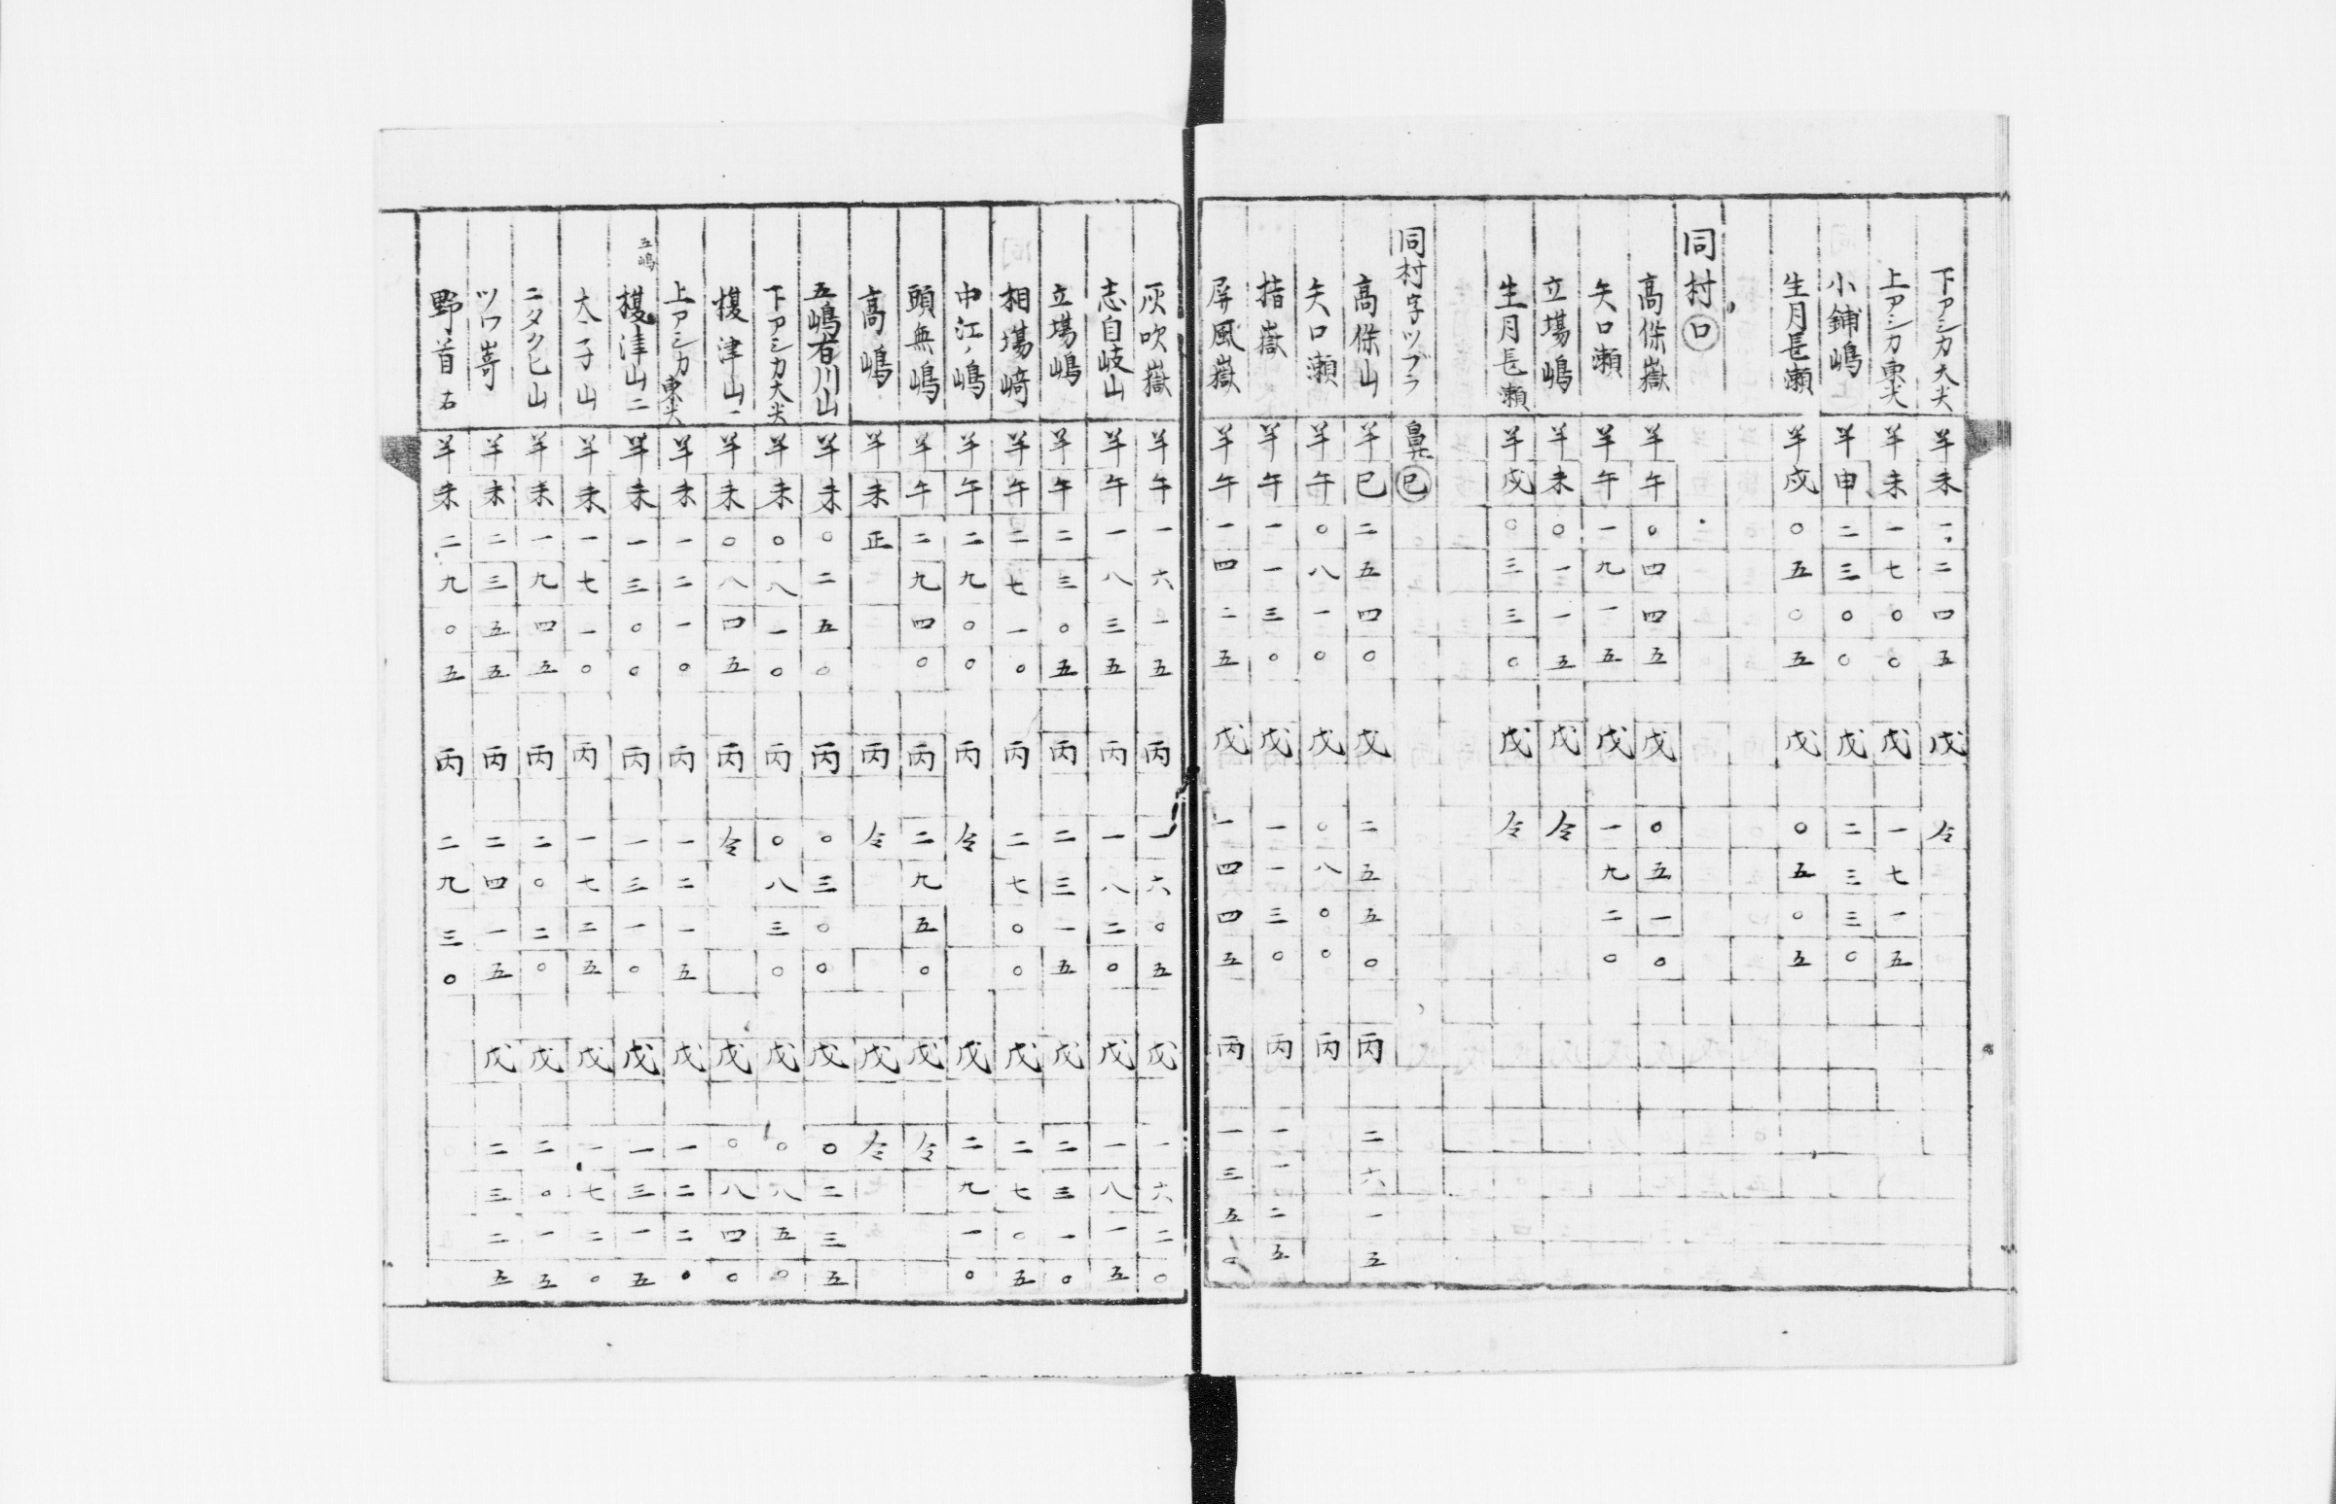 下アシカ大尖 羊未 一二四五 戊 仝
上アシカ東尖 羊未 一七〇〇 戊 一七一五
小鋪嶋 羊申 二三〇〇 戊 二三三〇
生月長瀬 羊戌 〇五〇五 戊 〇五〇五
同村口
高保嶽 羊午 〇四四五 戊 〇五一〇
矢口瀬 羊午 一九一五 戊 一九二〇
立場嶋 羊未 〇一一五 戊 仝
生月長瀬 羊戌 〇三三〇 戊 仝
同村字ツブラ 鼻 巳
高保山 羊巳 二五四〇 戊 二五五〇 丙 二六一五
矢口瀬 羊午 〇八一〇 戊 〇八〇〇 丙
指嶽 羊午 一一三〇 戊 一一三〇 丙 一一二五
屏風嶽 羊午 一四二五 戊 一四四五 丙 一三五〇
灰吹嶽 羊午 一六一五 丙 一六〇五 戊 一六二〇
志自岐山 羊午 一八三五 丙 一八二〇 戊 一八一五
立場嶋 羊午 二三〇五 丙 二三一五 戊 二三一〇
相場﨑 羊午 二七一〇 丙 二七〇〇 戊 二七〇五
中江ノ嶋 羊午 二九〇〇 丙 仝 戊 二九一〇
頭無嶋 羊午 二九四〇 丙 二九五〇 戊 仝
高嶋 羊未 正 丙 仝 戊 仝
五嶋者川山 羊未 〇二五〇 丙 〇三〇〇 戊 〇二三五
下アシカ大尖 羊未 〇八一〇 丙 〇八三〇 戊 〇八五〇
榎津山一 羊未 〇八四五 丙 仝 戊 〇八四〇
上アシカ東尖 羊未 一二一〇 丙 一二一五 戊 一二二〇
五嶋 榎津山二 羊未 一三〇〇 丙 一三一〇 戊 一三一五
太子山 羊未 一七一〇 丙 一七二五 戊 一七二〇
ニタタヒ山 羊未 一九四五 丙 二〇二〇 戊 二〇一五
ツワ嵜 羊未 二三五五 丙 二四一五 戊 二三二五
野首 右 羊未 二九〇五 丙 二九三〇